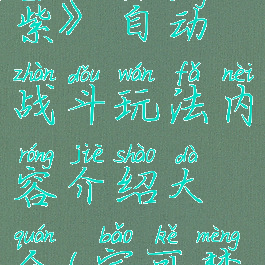 紫》自动
zhàn dòu wán fǎ nèi
战斗玩法内
róng jiè shào dà
容介绍大
quán bǎo kě mèng